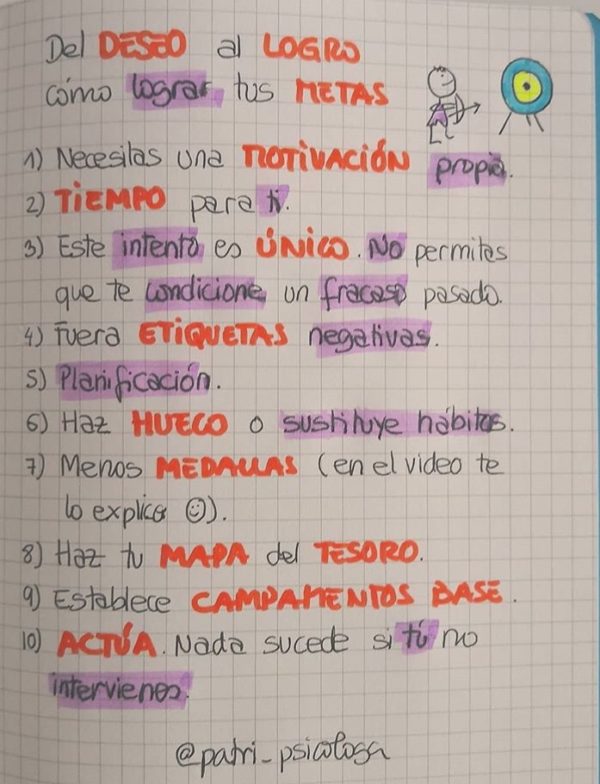 Del DESEO al LOGRO
cómo lograr tus METAS
1) Necesitas una MOTIVACIÓN propia.
2) TIEMPO para ti.
3) Este intento es ÚNICO. No permitas
que te condicione un fracaso pasado.
4) Fuera ETIQUETAS negativas.
5) Planificación.
6) Haz HUECO o sustituye hábitos.
7) Menos MEDALLAS (en el video te
lo explico ☺).
8) Haz tu MAPA del TESORO.
9) Establece CAMPAMENTOS BASE.
10) ACTÚA. Nada sucede si tú no
intervienes.
@patri_psicologa